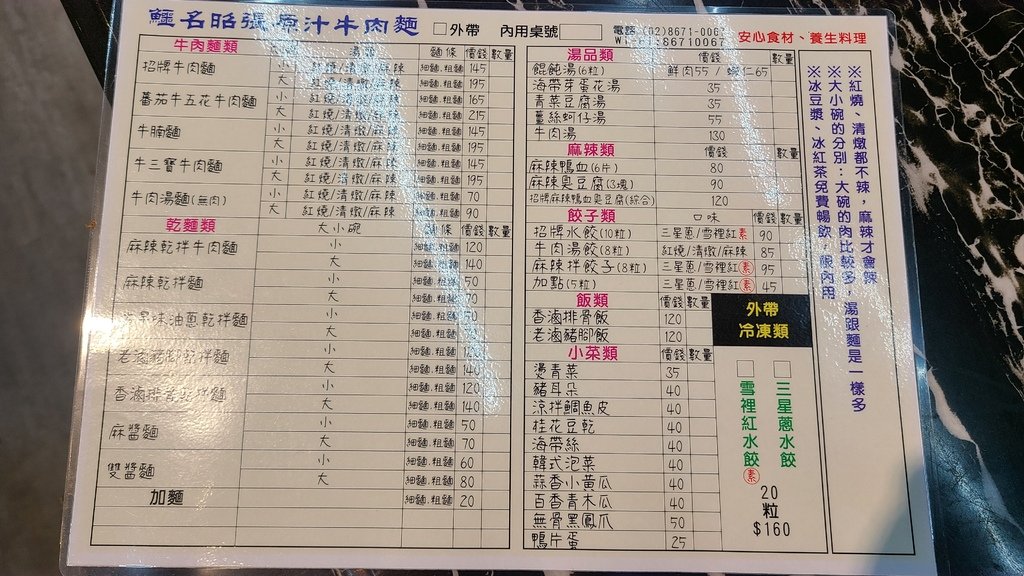 鱷名昭張原汁牛肉麵 □外帶 內用桌號
電話:(02)8671-006
86710067
安心食材、養生料理
牛肉麵類 麵條 價錢 數量
招牌牛肉麵 小 紅燒/清燉/麻辣 細麵.粗麵 145
大 紅燒/清燉/麻辣 細麵.粗麵 195
蕃茄牛五花牛肉麵 小 紅燒/清燉/麻辣 細麵.粗麵 165
大 紅燒/清燉/麻辣 細麵.粗麵 215
牛腩麵 小 紅燒/清燉/麻辣 細麵.粗麵 145
大 紅燒/清燉/麻辣 細麵.粗麵 195
牛三寶牛肉麵 小 紅燒/清燉/麻辣 細麵.粗麵 145
大 紅燒/清燉/麻辣 細麵.粗麵 195
牛肉湯麵(無肉) 小 紅燒/清燉/麻辣 細麵.粗麵 70
大 紅燒/清燉/麻辣 細麵.粗麵 90
乾麵類 大小碗 麵條 價錢 數量
麻辣乾拌牛肉麵 小 細麵.粗麵 120
大 細麵.粗麵 140
麻辣乾拌麵 小 細麵.粗麵 50
大 細麵.粗麵 70
味油蔥乾拌麵 小 細麵.粗麵 50
大 細麵.粗麵
老滷豬腳乾拌麵 小 細麵.粗麵
大 細麵.粗麵 140
香滷排骨乾拌麵 小 細麵.粗麵 120
大 細麵.粗麵 140
麻醬麵 小 細麵.粗麵 50
大 細麵.粗麵 70
雙醬麵 小 細麵.粗麵 60
大 細麵.粗麵 80
加麵 細麵.粗麵 20
湯品類 價錢 數量
餛飩湯(6粒) 鮮肉55 / 蝦仁65
海帶芽蛋花湯 35
青菜豆腐湯 35
薑絲蚵仔湯 55
牛肉湯 130
麻辣類 價錢 數量
麻辣鴨血(6片) 80
麻辣臭豆腐(3塊) 90
招牌麻辣鴨血臭豆腐(綜合) 120
餃子類 口味 價錢 數量
招牌水餃(10粒) 三星蔥/雪裡紅素 90
牛肉湯餃(8粒) 紅燒/清燉/麻辣 85
麻辣拌餃子(8粒) 三星蔥/雪裡紅素 95
加點(5粒) 三星蔥/雪裡紅素 45
飯類 價錢 數量
香滷排骨飯 120
老滷豬腳飯 120
小菜類 價錢 數量
燙青菜 35
豬耳朵 40
涼拌鯛魚皮 40
桂花豆乾 40
海帶絲 40
韓式泡菜 40
蒜香小黃瓜 40
百香青木瓜 40
無骨黑鳳爪 50
鴨片蛋 25
外帶
冷凍類
□三星蔥水餃
□雪裡紅水餃素
20
粒
$160
※紅燒、清燉都不辣，麻辣才會辣
※大小碗的分別：大碗的肉比較多，湯跟麵是一樣多
※冰豆漿、冰紅茶免費暢飲，限內用